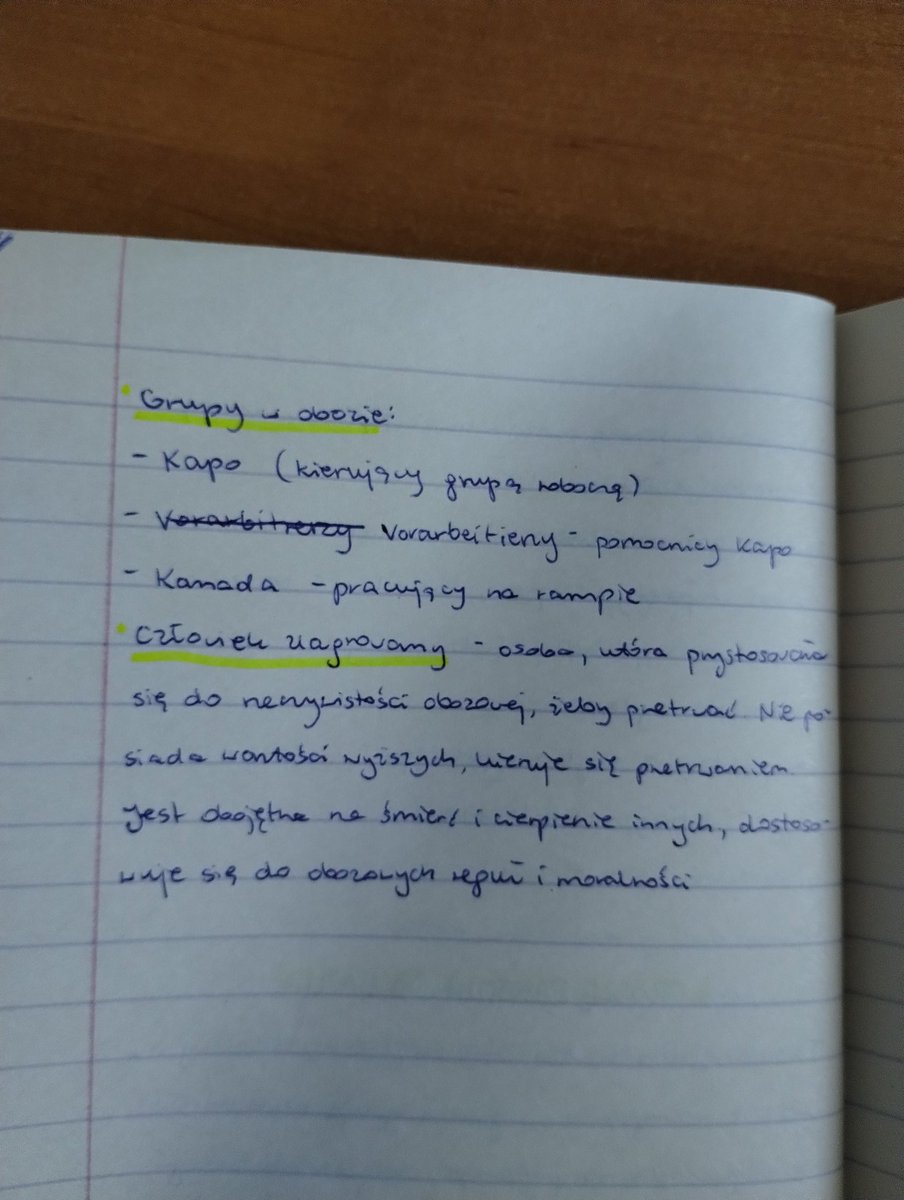 • Grupy w obozie:
- Kapo (kierujący grupą roboczą)
- Vorarbitrerzy Vorarbeitierzy - pomocnicy kapo
- Kanada - pracujący na rampie
• Człowiek zlagrowany - osoba, która przystosowała
się do rzeczywistości obozowej, żeby przetrwać. Nie po-
siada wartości wyższych, kieruje się przetrwaniem.
Jest obojętna na śmierć i cierpienie innych, dostoso-
wuje się do obozowych reguł i moralności